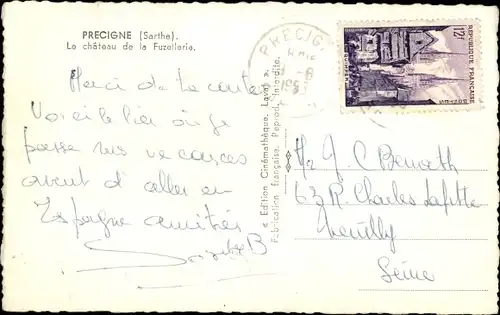 PRECIGNE (Sarthe).
Le château de la Fuzellerie.
Merci de la carte
Voici le lieu où je
passe mes vacances
avant d'aller en
Espagne amitiés
B
« Edition Cinémathèque, Laval ».
Fabrication française. Reprod. Interdite.
PRECIG
12F
REPUBLIQUE FRANÇAISE
QUIMPER
63 R. Charles Lafitte
Neuilly
Seine